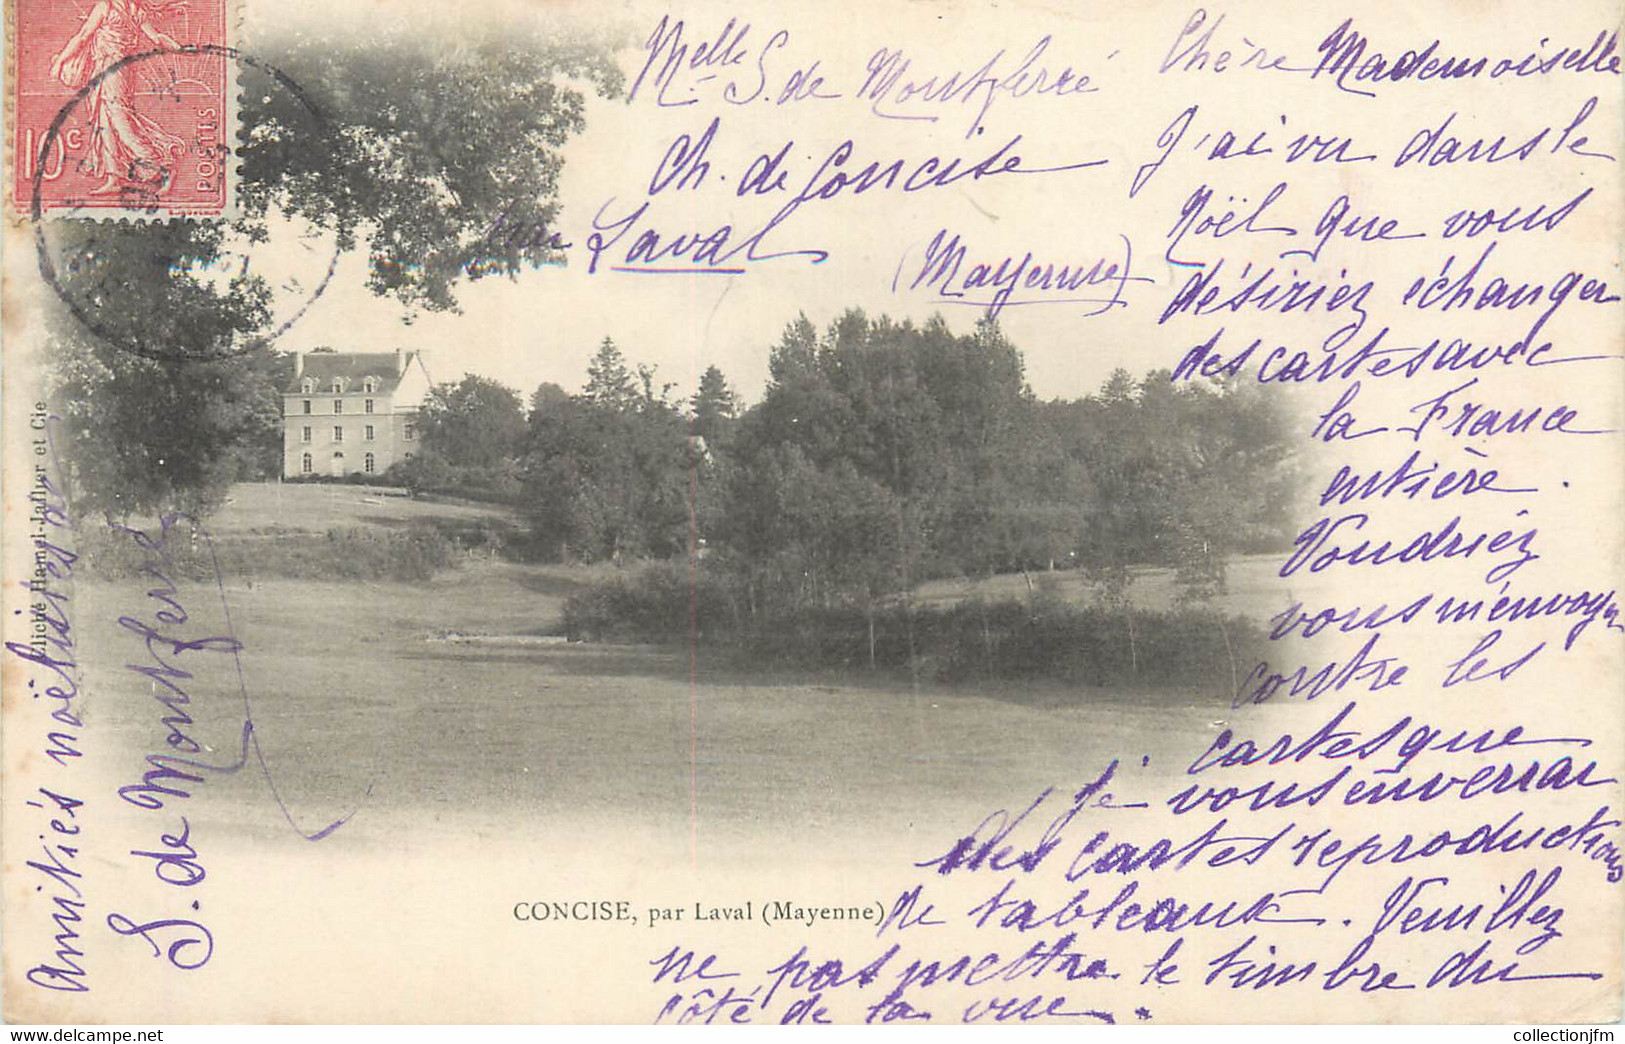 10c
POSTES
Melle S. de Montferré
Ch. de Concise
par Laval
(Mayenne)
Chère Mademoiselle
J'ai vu dans le
Noël que vous
désiriez échanger
des cartes avec
la France
entière.
Voudriez
vous m'envoyer
contre les
cartes que
je vous enverrai
des cartes reproductions
de tableaux. Veuillez
ne pas mettre le timbre du
côté de la vue.
Amitiés noëlistes
S. de Montferré
Cliché Hamel-Jallier et Cie
CONCISE, par Laval (Mayenne)
collectionjfm